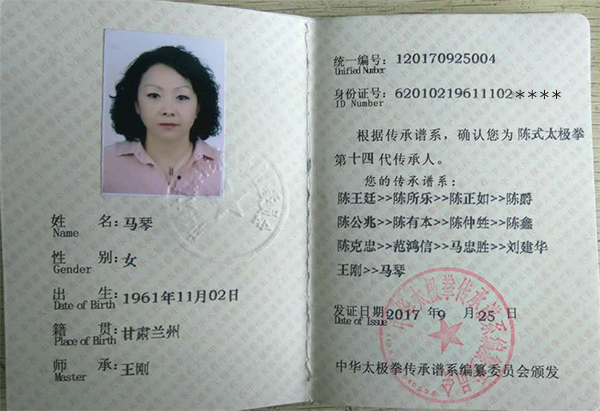 姓 名：马琴
Name
性 别：女
Gender
出 生：1961年11月02日
Date of Birth
籍 贯：甘肃兰州
Place of Birth
师 承：王刚
Master
统一编号：120170925004
Unified Number
身份证号：62010219611102****
ID Number
根据传承谱系，确认您为 陈式太极拳
第十四代传承人。
您的传承谱系：
陈王廷>>陈所乐>>陈正如>>陈爵
陈公兆>>陈有本>>陈仲甡>>陈鑫
陈克忠>>范鸿信>>马忠胜>>刘建华
王刚>>马琴
发证日期 2017 年 9 月 25 日
Date of Issue
中华太极拳传承谱系编纂委员会
中华太极拳传承谱系编纂委员会颁发